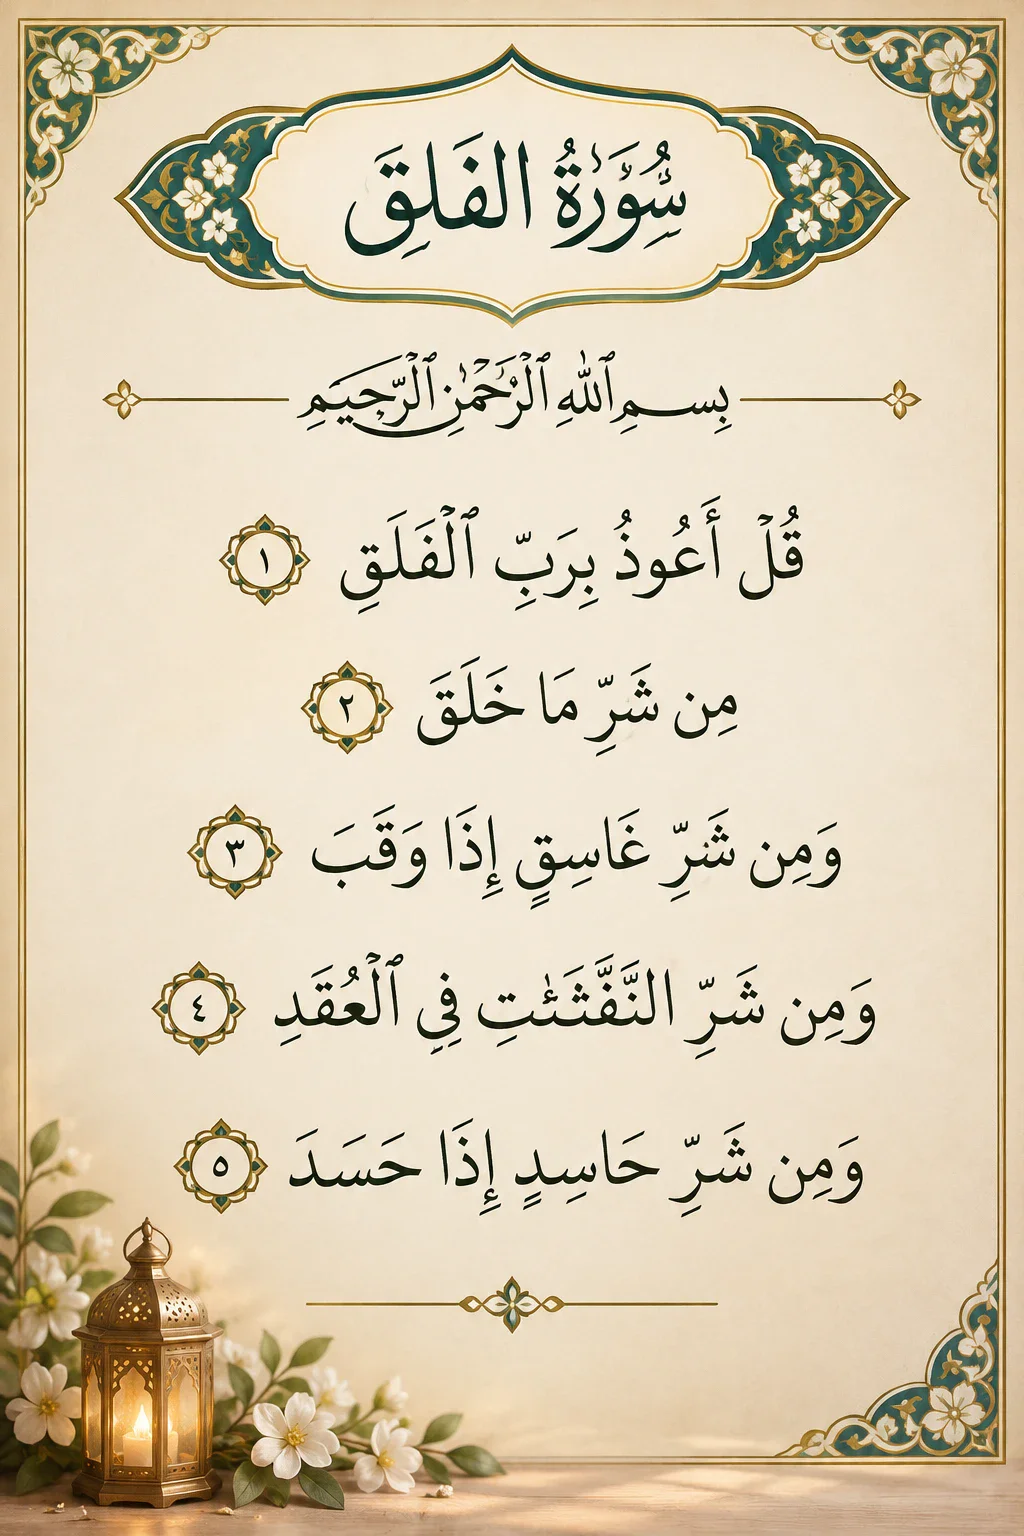 سُورَةُ الفَلَقِ
بِسمِ ٱللهِ ٱلرَّحۡمَٰنِ ٱلرَّحِيمِ
قُلۡ أَعُوذُ بِرَبِّ ٱلۡفَلَقِ ١
مِن شَرِّ مَا خَلَقَ ٢
وَمِن شَرِّ غَاسِقٍ إِذَا وَقَبَ ٣
وَمِن شَرِّ النَّفَّثَـٰٔتِ فِي ٱلۡعُقَدِ ٤
وَمِن شَرِّ حَاسِدٍ إِذَا حَسَدَ ٥